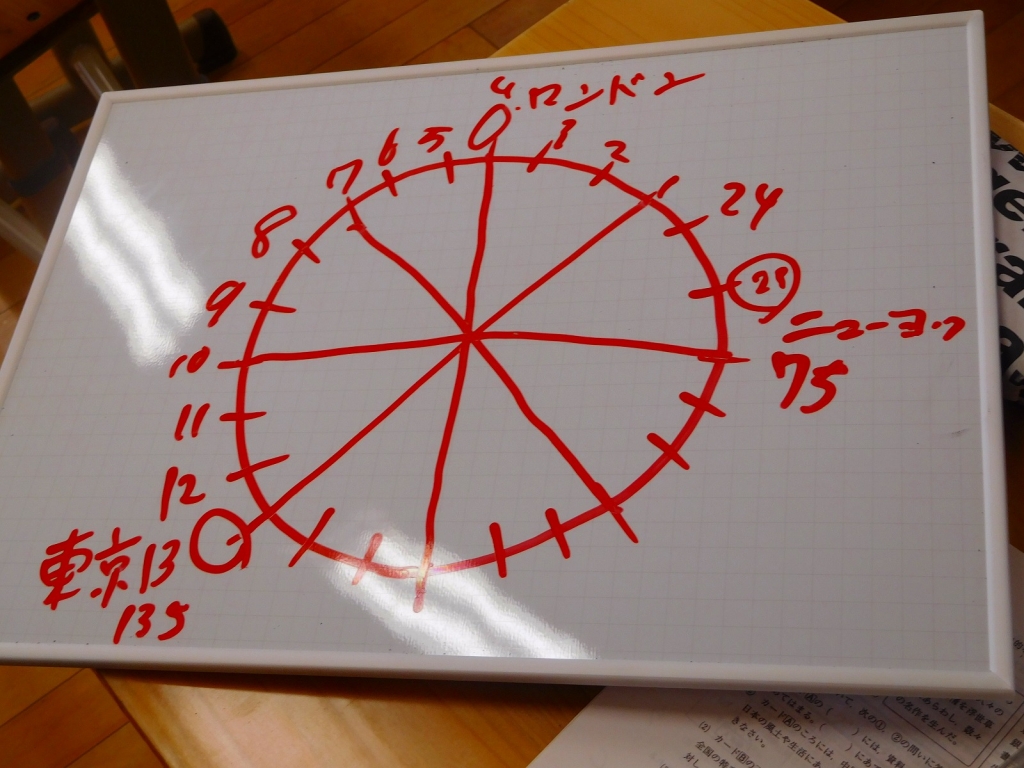 4.ロンドン
0
3
2
1
24
23
ニューヨーク
75
5
6
7
8
9
10
11
12
東京 13
135